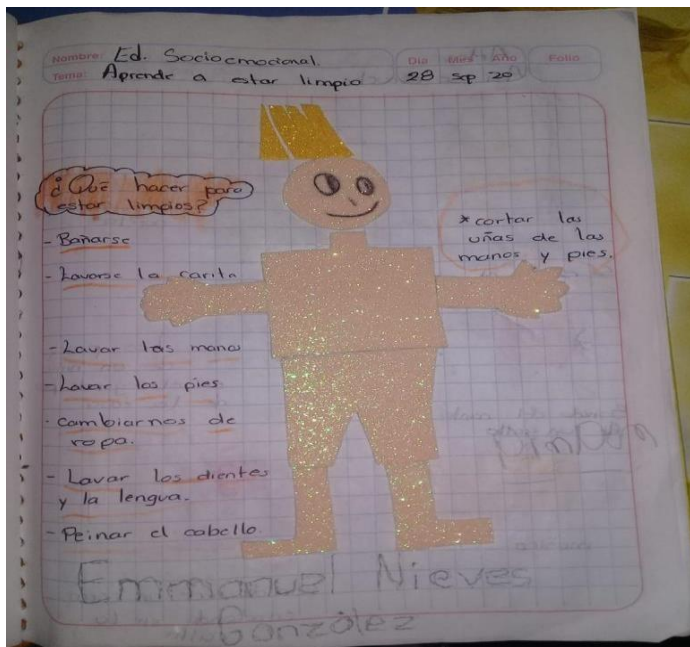 Nombre: Ed. Socioemocional.
Día Mes Año
Folio
Tema: Aprende a estar limpio
28 sep 20
¿Qué hacer para
estar limpios?
- Bañarse
- Lavarse la carita
- Lavar las manos
- Lavar los pies
- cambiarnos de
ropa.
- Lavar los dientes
y la lengua.
- Peinar el cabello
* cortar las
uñas de las
manos y pies.
Emmanuel Nieves
González